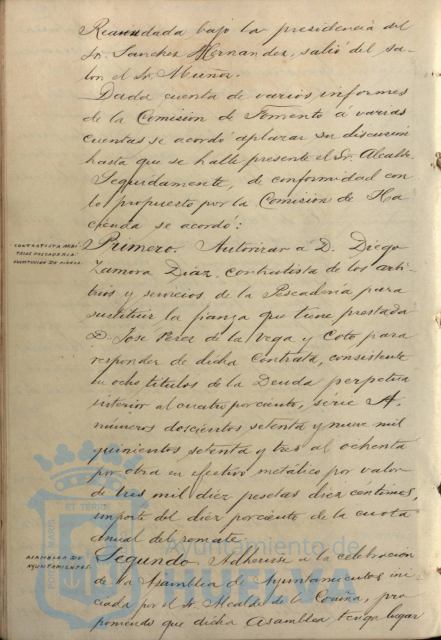 Reanudada bajo la presidencia del
Sr. Sanchez Hernandez, salió del sa-
lon el Sr. Muñoz.
Dada cuenta de varios informes
de la Comision de Fomento á varias
cuentas se acordó aplazar su discusion
hasta que se halle presente el Sr. Alcalde.
Seguidamente, de conformidad con
lo propuesto por la Comision de Ha-
cienda se acordó:
CONTRATISTA ARBI-
TRIOS PESCADERIA
SUSTITUCION DE FIANZA
Primero. Autorizar á D. Diego
Zamora Diaz, contratista de los arbi-
trios y servicios de la Pescadería para
sustituir la fianza que tiene prestada
D. José Perez de la Vega y Coto para
responder de dicha Contrata, consistente
en ocho titulos de la Deuda perpetua
interior al cuatro por ciento, série A,
números doscientos setenta y nueve mil
quinientos setenta y tres al ochenta
por otra en efectivo metálico por valor
de tres mil diez pesetas diez céntimos,
importe del diez por ciento de la cuota
anual del remate.
ASAMBLEA DE
AYUNTAMIENTOS.
Segundo. Adherirse á la celebracion
de la Asamblea de Ayuntamientos ini-
ciada por el Sr. Alcalde de la Coruña, pro-
poniendo que dicha Asamblea tenga lugar
PORTUS MARIS ET TERRAE
Ayuntamiento de
HUELVA